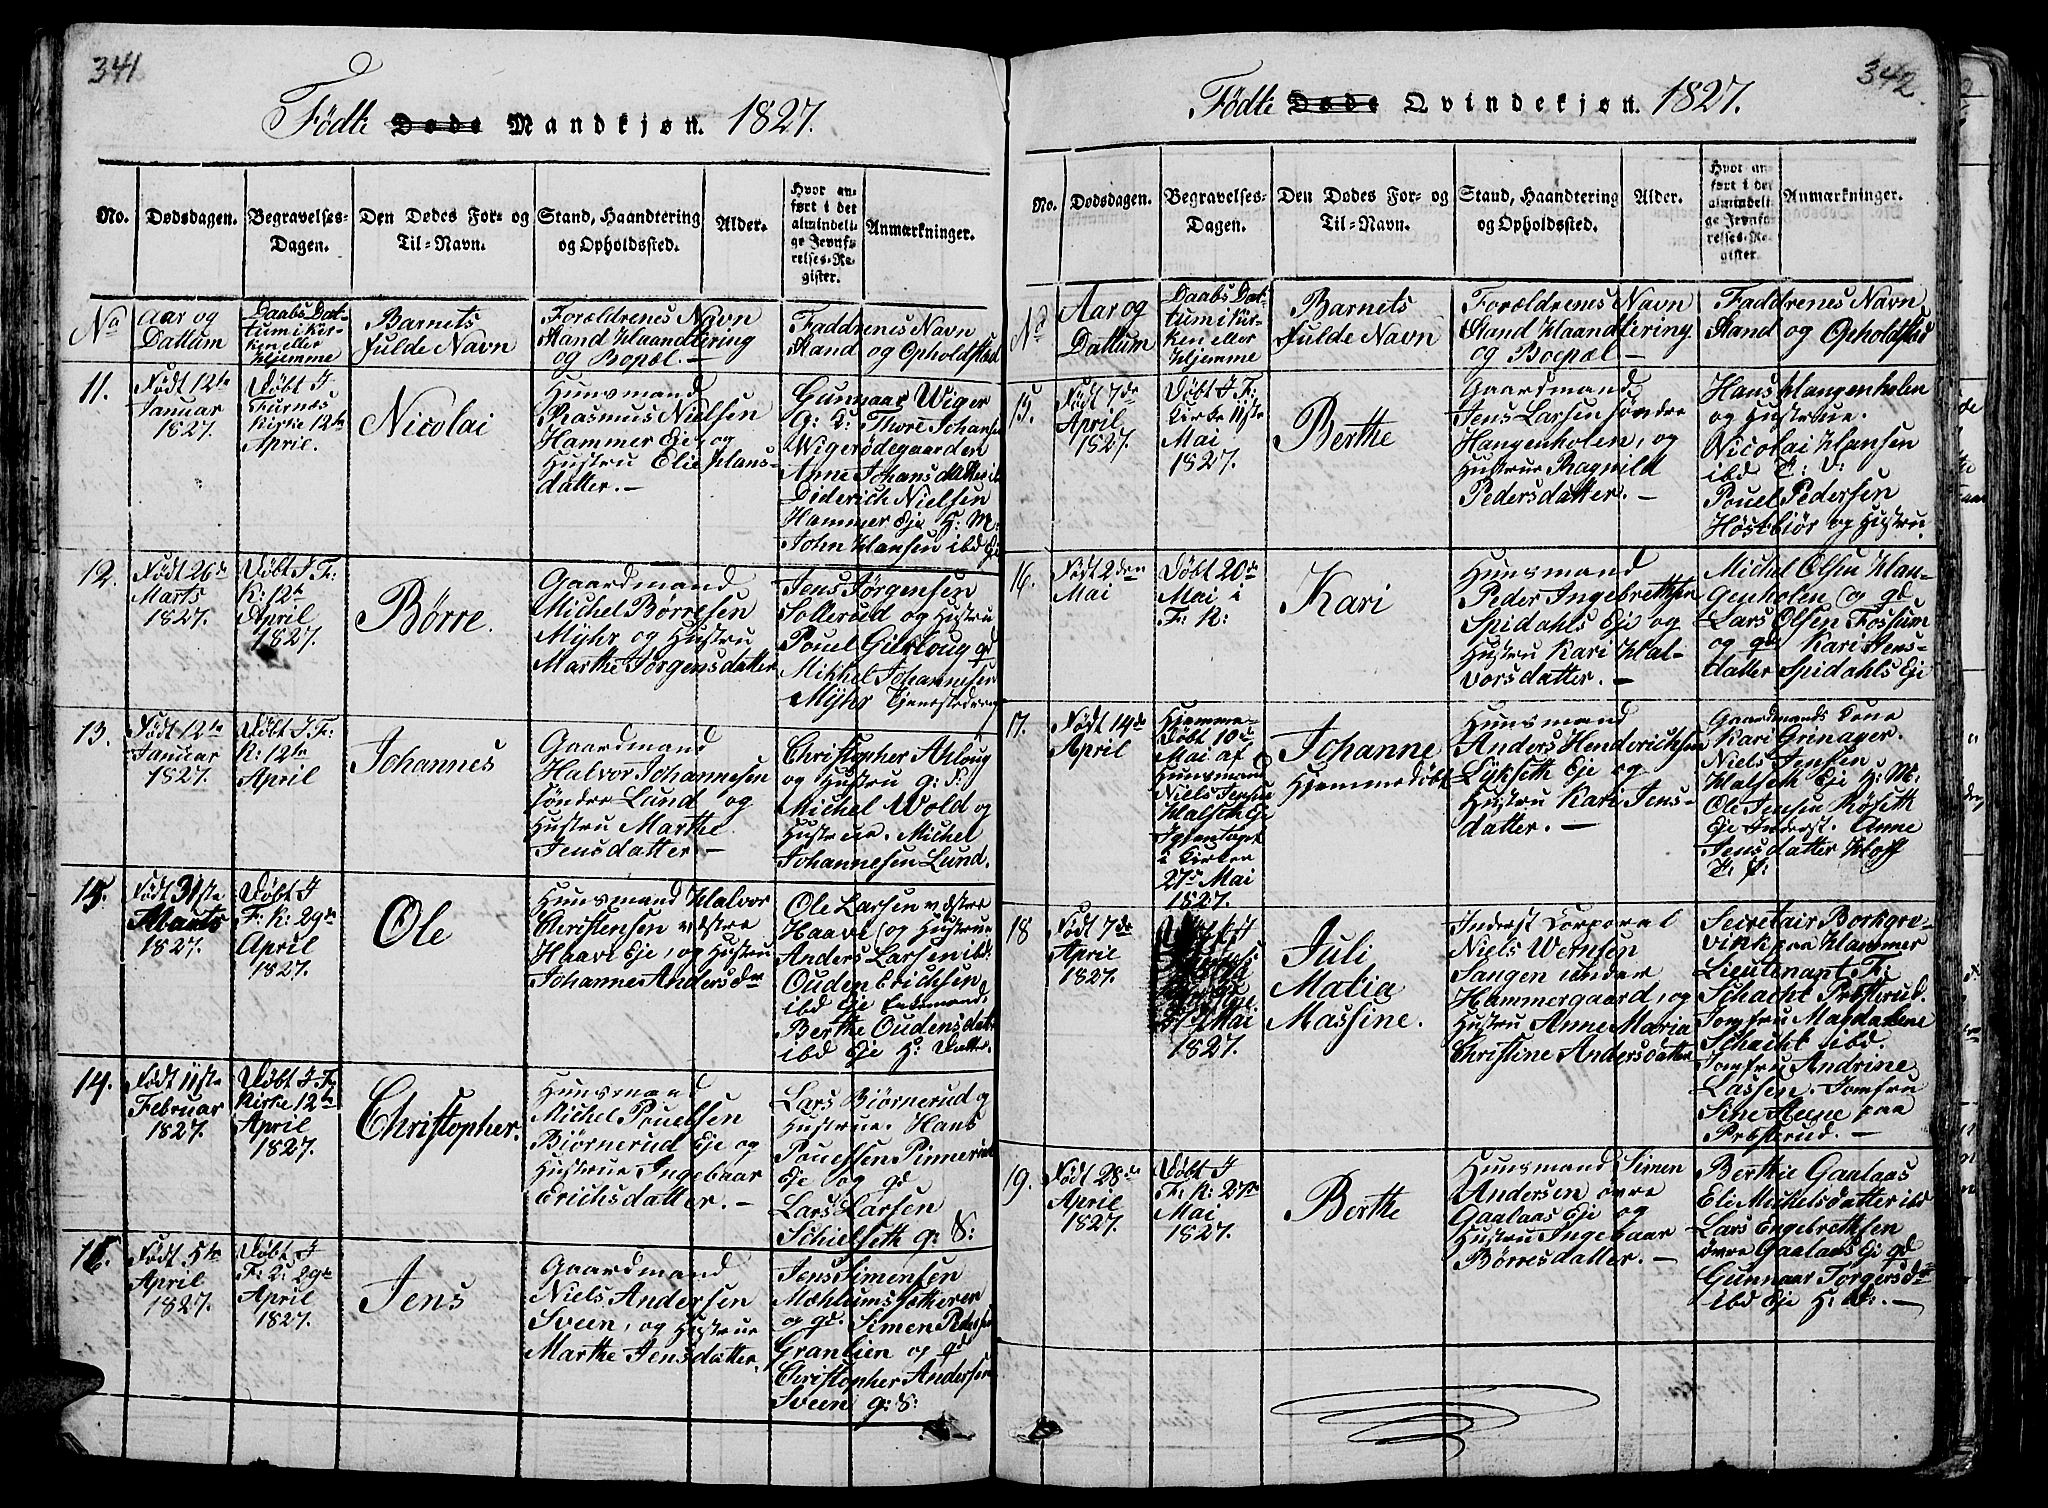 341
Fødte Døde Mandkjøn. 1827.
No.
Dødsdagen.
Begravelses-
Dagen.
Den Dødes For- og
Til-Navn.
Stand, Haandtering
og Opholdssted.
Alder.
Hvor an-
ført i det
almindeli-
ge Jevnfø-
relses-Re-
gister.
Anmærkninger.
No
Aar og
Dattum
Daabs Dat-
tum i Kir-
ken eller
Hjemme
Barnets
fulde Navn
Forældrenes Navn
Stand Haandtering
og Bopæl. –
Faddrenes Navn
Stand og Opholdsted
11.
Født 12te
Januar
1827.
Døbt I
Furnæs
Kirke 12te
April.
Nicolai
Huusmand
Rasmus Nielsen
Hammer Eje og
Hustru Elie Hans-
datter. –
Gunnaar Wiger
G: K: Thore Johansen
Wigerødegaarden
Anne Johansdatter ib
Diderich Nielsen
Hammer Eje H: M:
John Hansen ibd Eje
12.
Født 26de
Marts
1827.
Døbt I F:
K: 12te
April
1827.
Børre.
Gaardmand
Michel Børresen
Myhr og Hustru
Marthe Jørgensdatter
Jens Jørgensen
Sollerud og Hustru
Pouel Gurloug gd
Mikkel Johannesen
Myhr Tjenestedreng
13.
Født 12te
Januar
1827.
Døbt I F:
K: 12te
April
Johannes
Gaardmand
Halvor Johannesen
søndre Lund og
Hustru Marthe
Jensdatter –
Christopher Ahloug
og Hustru g: F:
Michel Wold og
Hustrue. Michel
Johannesen Lund.
15.
Født 31ste
Marts
1827.
Døbt I
F: K: 29de
April
1827.
Ole
Huusmand Halvor
Christensen væstre
Haave Eje, og Hustru
Johanne Andersdr
Ole Larsen væstre
Haave og Hustrue
Anders Larsen ibd:
Ouden Erichsen
ibd Eje Enkemand,
Berthe Oudensdatt
ibd Eje H: Datter.
14.
Født 11ste
Februar
1827.
Døbt I F:
Kirke 12te
April
1827.
Christopher.
Huusmand
Michel Pouelsen
Bjørnerud Eje og
Hustrue Ingebaar
Erichsdatter. –
Lars Bjørnerud g
Hustrue. Hans
Pouelsen Pinnerud
Eje og gd
Lars Larsen
Schielseth g: S:
16.
Født 5te
April
1827.
Døbt I
F: K: 29de
April
1827.
Jens
Gaardmand
Niels Andersen
Sveen, og Hustrue
Marthe Jensdatter.
Jens Simensen
Mæhlums
og gd. Simen Pedersen
Granlien og gd
Christopher Andersen
Sveen g: S:
342.
Fødte Døde Qvindekjøn. 1827.
No.
Dødsdagen.
Begravelses-
Dagen.
Den Dødes For- og
Til-Navn.
Stand, Haandtering
og Opholdssted.
Alder.
Hvor an-
ført i det
almindeli-
ge Jevnfø-
relses-Re-
gister.
Anmærkninger.
No
Aar og
Dattum
Daabs Dat-
tum i Kir-
ken eller
Hjemme
Barnets
fulde Navn
Forældrenes Navn
Stand Haandtering
og Boepæl –
Faddrenes Navn
Stand og Opholdsted
15.
Født 7de
April
1827.
Døbt I F:
Kirke 11ste
Mai
1827.
Berthe
Gaardmand
Jens Larsen søndre
Hangenholen, og
Hustrue Ragnild
Pedersdatter. –
Hans Hangenholen
og Hustrue.
Nicolai Hansen
ibd
Pouel Pedersen
Høstbiør og Hustru.
16.
Født 2den
Mai
Døbt 20de
Mai i
F: K:
Kari
Huusmand
Peder Ingebretsen
Spidahls Eje og
Hustru Kari Hal-
vorsdatter. –
Michel Olsen Han-
genholen og gd
Lars Olsen Fossum
og gd Kari Jens-
datter Spidahls Eje
17.
Født 14de
April
Hjemme-
Døbt 10de
Mai af
Huusmand
Niels Jensen
Halseth Eje
Igjentaget
i Kirken
27de Mai
1827.
Johanne
Hjemmedøbt
Huusmand
Anders Henderichsen
Lykseth Eje og
Hustru Kari Jens-
datter. –
Gaardmands Kone
Kari Grinager.
Niels Jensen
Halseth Eje H: M:
Ole Jensen Røseth
Eje Inderst. Anne
Jensdatter Hoff
18
Født 7de
April
1827.
Mai
1827.
Juli
Malia
Massine.
Inderst Corporal
Niels Wernsen
Sangen under
Hammergaard, og
Hustru Anne Maria
Christine Andersdatter
Secretair Borkgre-
vink paa Hammer
Lieutenant F:
Schacht Præsterud.
Jomfru Magdalene
Schacht ibd.
Jomfru Andrine
Lassen. Jomfru
Sine Steene paa
Præsterud. –
19.
Født 28de
April
1827.
Døbt I
F: K: 27de
Mai
1827.
Berthe
Huusmand Simen
Andersen øvre
Gaalaas Eje og
Hustru Ingebaar
Børresdatter. –
Berthe Gaalaas
Eli Mickelsdatter ibd
Lars Engebrethsen
øvre Gaalaas Eje gd
Gunnaar Torgersd
ibd Eje H: –